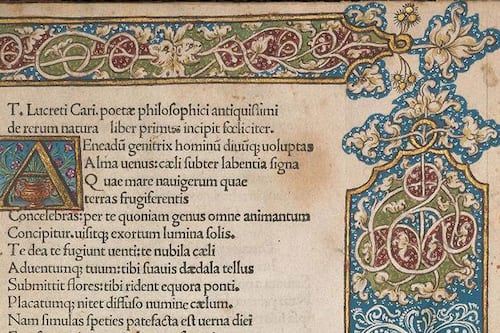 T. Lucreti Cari. poetæ philosophici antiquissimi
de rerum natura liber primus incipit fœliciter.
AEneadũ genitrix hominũ diuũq; uoluptas
Alma uenus: cæli subter labentia signa
Quae mare nauigerum quae
terras frugiferentis
Concelebras: per te quoniam genus omne animantum
Concipitur. uisitq; exortum lumina solis.
Te dea te fugiunt uenti: te nubila cæli
Aduentumq; tuum: tibi suauis dædala tellus
Submittit flores: tibi rident equora ponti.
Placatumq; nitet diffuso numine cælum.
Nam simulas speties patefacta est uerna diei